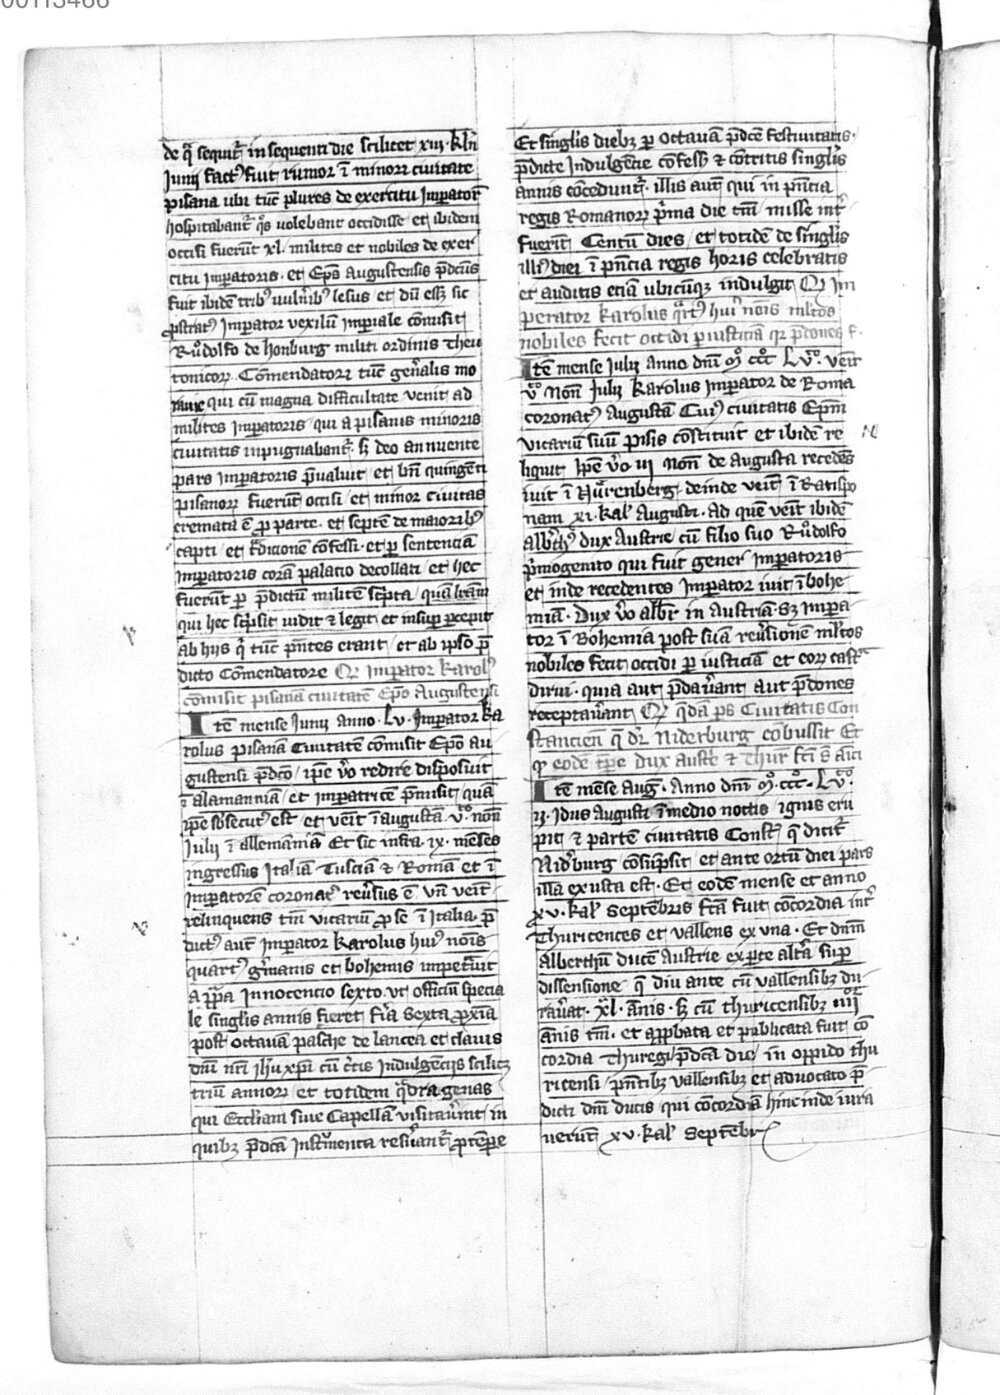 00113466
de q̄ sequit᷑ in sequenti die scilicet xiii. kl̄n
Junij factꝯ fuit rumor ī minori ciuitate
pisana ubi tūc plures de exercitu Imꝑator᷑
hospitabant᷑ q̊s volebant occidisse et ibidem
occisi fuerūt xl. milites et nobiles de exer
citu imꝑatoris. et Ep̄s Augustensis p̄dc̄us
fuit ibidē tribꝰ uulnibꝰ lesus et dū eēt sic
ꝓstratꝰ Imꝑator vexilū imꝑiale cōmisit
Růdolfo de honburg militi ordinis theu
tonicoꝝ. Cōmendatori tūc gen̄alis mo
rauie qui cū magna difficultate venit ad
milites Imꝑatoris qui a pisanis minoris
ciuitatis inpugnabant᷑. sꝫ deo annuente
pars imꝑatoris p̄ualuit et bn̄ quingēti
pisanoꝝ fuerūt occisi et minor ciuitas
cremata ē ꝓ parte. et septē de maioribꝰ
capti et ꝓdicionē cōfessi. et ꝑ sentenciā
imꝑatoris corā palacio decollati et hec
fuerūt ꝑ p̄dictū militē scͥpta quā lr̄am
qui hec scͥpsit vidit ⁊ legit et insuꝑ ꝑcepit
ab hijs qͥ tūc p̄ntes erant et ab ipso p̄
dicto Cōmendatore Qͬ imꝑator karolꝰ
cōmisit pisanā ciuitatē Ep̄o Augustensi
Itē mense Junij anno. lv. Imꝑator ka
rolus pisanā Ciuitatē cōmisit Ep̄o au
gustensi p̄dc̄o ip̄e v̊o redire disposuit
ī alamanniā et imꝑatricē p̄misit quā
ip̄e sb̄secutꝰ est et veīt ī augustā .v.to non̄
Julij ī allemāniā Et sic infra .ix. mēses
ingressus Italiā Tusciā ⁊ Romā et ī
imꝑatorē coronatꝰ reūsus ē vn̄ veīt
relinquens tm̄ vicariū ꝓ se ī Italia. p̄
dictꝰ aut̄ Imꝑator karolus huiꝰ nōis
quartꝰ ḡmanis et bohemis impetuit
a pp̄a Innocencio sexto. vt officiū specia
le singlis annis fieret fīa sexta ꝓxīa
post octauā pasche de lancea et clauis
dn̄i nr̄i ih̄u xp̄i cū c̄tis Indulgēcijs scilicꝫ
triū annoꝝ et totidem q̊dragenas
qui Eccl̄iam siue Capellā visitaūint in
quibꝫ p̄dc̄a Instūmenta reseruant᷑ ꝓtēpe
Et singlis diebꝫ ꝑ octauā p̄dc̄e festiuitatis.
p̄dicte Indulgēcie cōfess᷑ ⁊ cōtritis singlis
annis cōcedunt᷑. illis aut̄ qui in p̄ncia
regis Romanoꝝ p̄ma die tm̄ misse int᷑
fuerīt Centū dies et totidē de singlis
illiꝰ diei ī p̄ncia regis horis celebratis
et auditis etiā ubicūqꝫ indulgit Qͬ Im
perator karolus q̄rtꝰ huiꝰ nōis ml̄tos
nobiles fecit occidi ꝑ iusticiā qꝛ p̄dones f.
Itē mense Julij Anno dn̄i .M. ccc. Lv.to. veīt
v.to Non̄ Julij Karolus Imꝑator de Roma
coronatꝰ Augustā Cuiꝰ ciuitatis Ep̄m
vicariū suū pisis cōstituit et ibidē re
liquit ip̄e v̊o iij Non̄ de Augusta recedēs
iuit ī Nůrenberg. deinde veīt ī Ratispo
nam xi. kal̄ Augusti. ad quē veīt ibidē
albꝰtꝰ dux Austrie cū filio suo Růdolfo
p̄mogenito qui fuit gener Imꝑatoris
et inde recedentes Imꝑator iuit ī bohe
miā. Dux v̊o albr̄t in Austriā. Sꝫ Imꝑa
tor ī Bohemia post suā reūsionē ml̄tos
nobiles fecit occidi ꝑ iusticiā et eoꝝ castra
dirui. quia aut p̄daūant aut p̄dones
receptaūant Qͬ q̄dā ps Ciuitatis Con
stancien̄ q̄ dr̄ Niderburg cōbussit Et
qͬ eodē tp̄e dux Austͥe ⁊ Thur̄ fc̄i st̄ aīci
Itē mēse Aug᷑. Anno dn̄i .M. ccc. Lv.to.
ij. Idus Augusti ī medio noctis ignis eru
pit ⁊ partē ciuitatis Const᷑ q̄ dicit᷑
Nidburg cōsūpsit et ante ortū diei pars
illa exusta est. Et eodē mense et anno
xv. kal̄ Septēbris fc̄a fuit cōcordia int᷑
Thuricences et vallens ex una. Et dn̄m
Alberthū Ducē Austrie ex ꝑte alt᷑a suꝑ
dissensione q̄ diu ante cū vallensibꝫ du
raūat. xl. ānis. sꝫ cū thuricensibꝫ iiij.or
ānis tm̄. et aꝓbata et publicata fuit cō
cordia Thuregi p̄dc̄a die in oppido thu
ricensi p̄ntibꝫ vallensibꝫ et aduocato p̄
dicti dn̄i ducis qui cōcordiā hincinde iura
uerūt xv. kal̄ Septēbr᷑